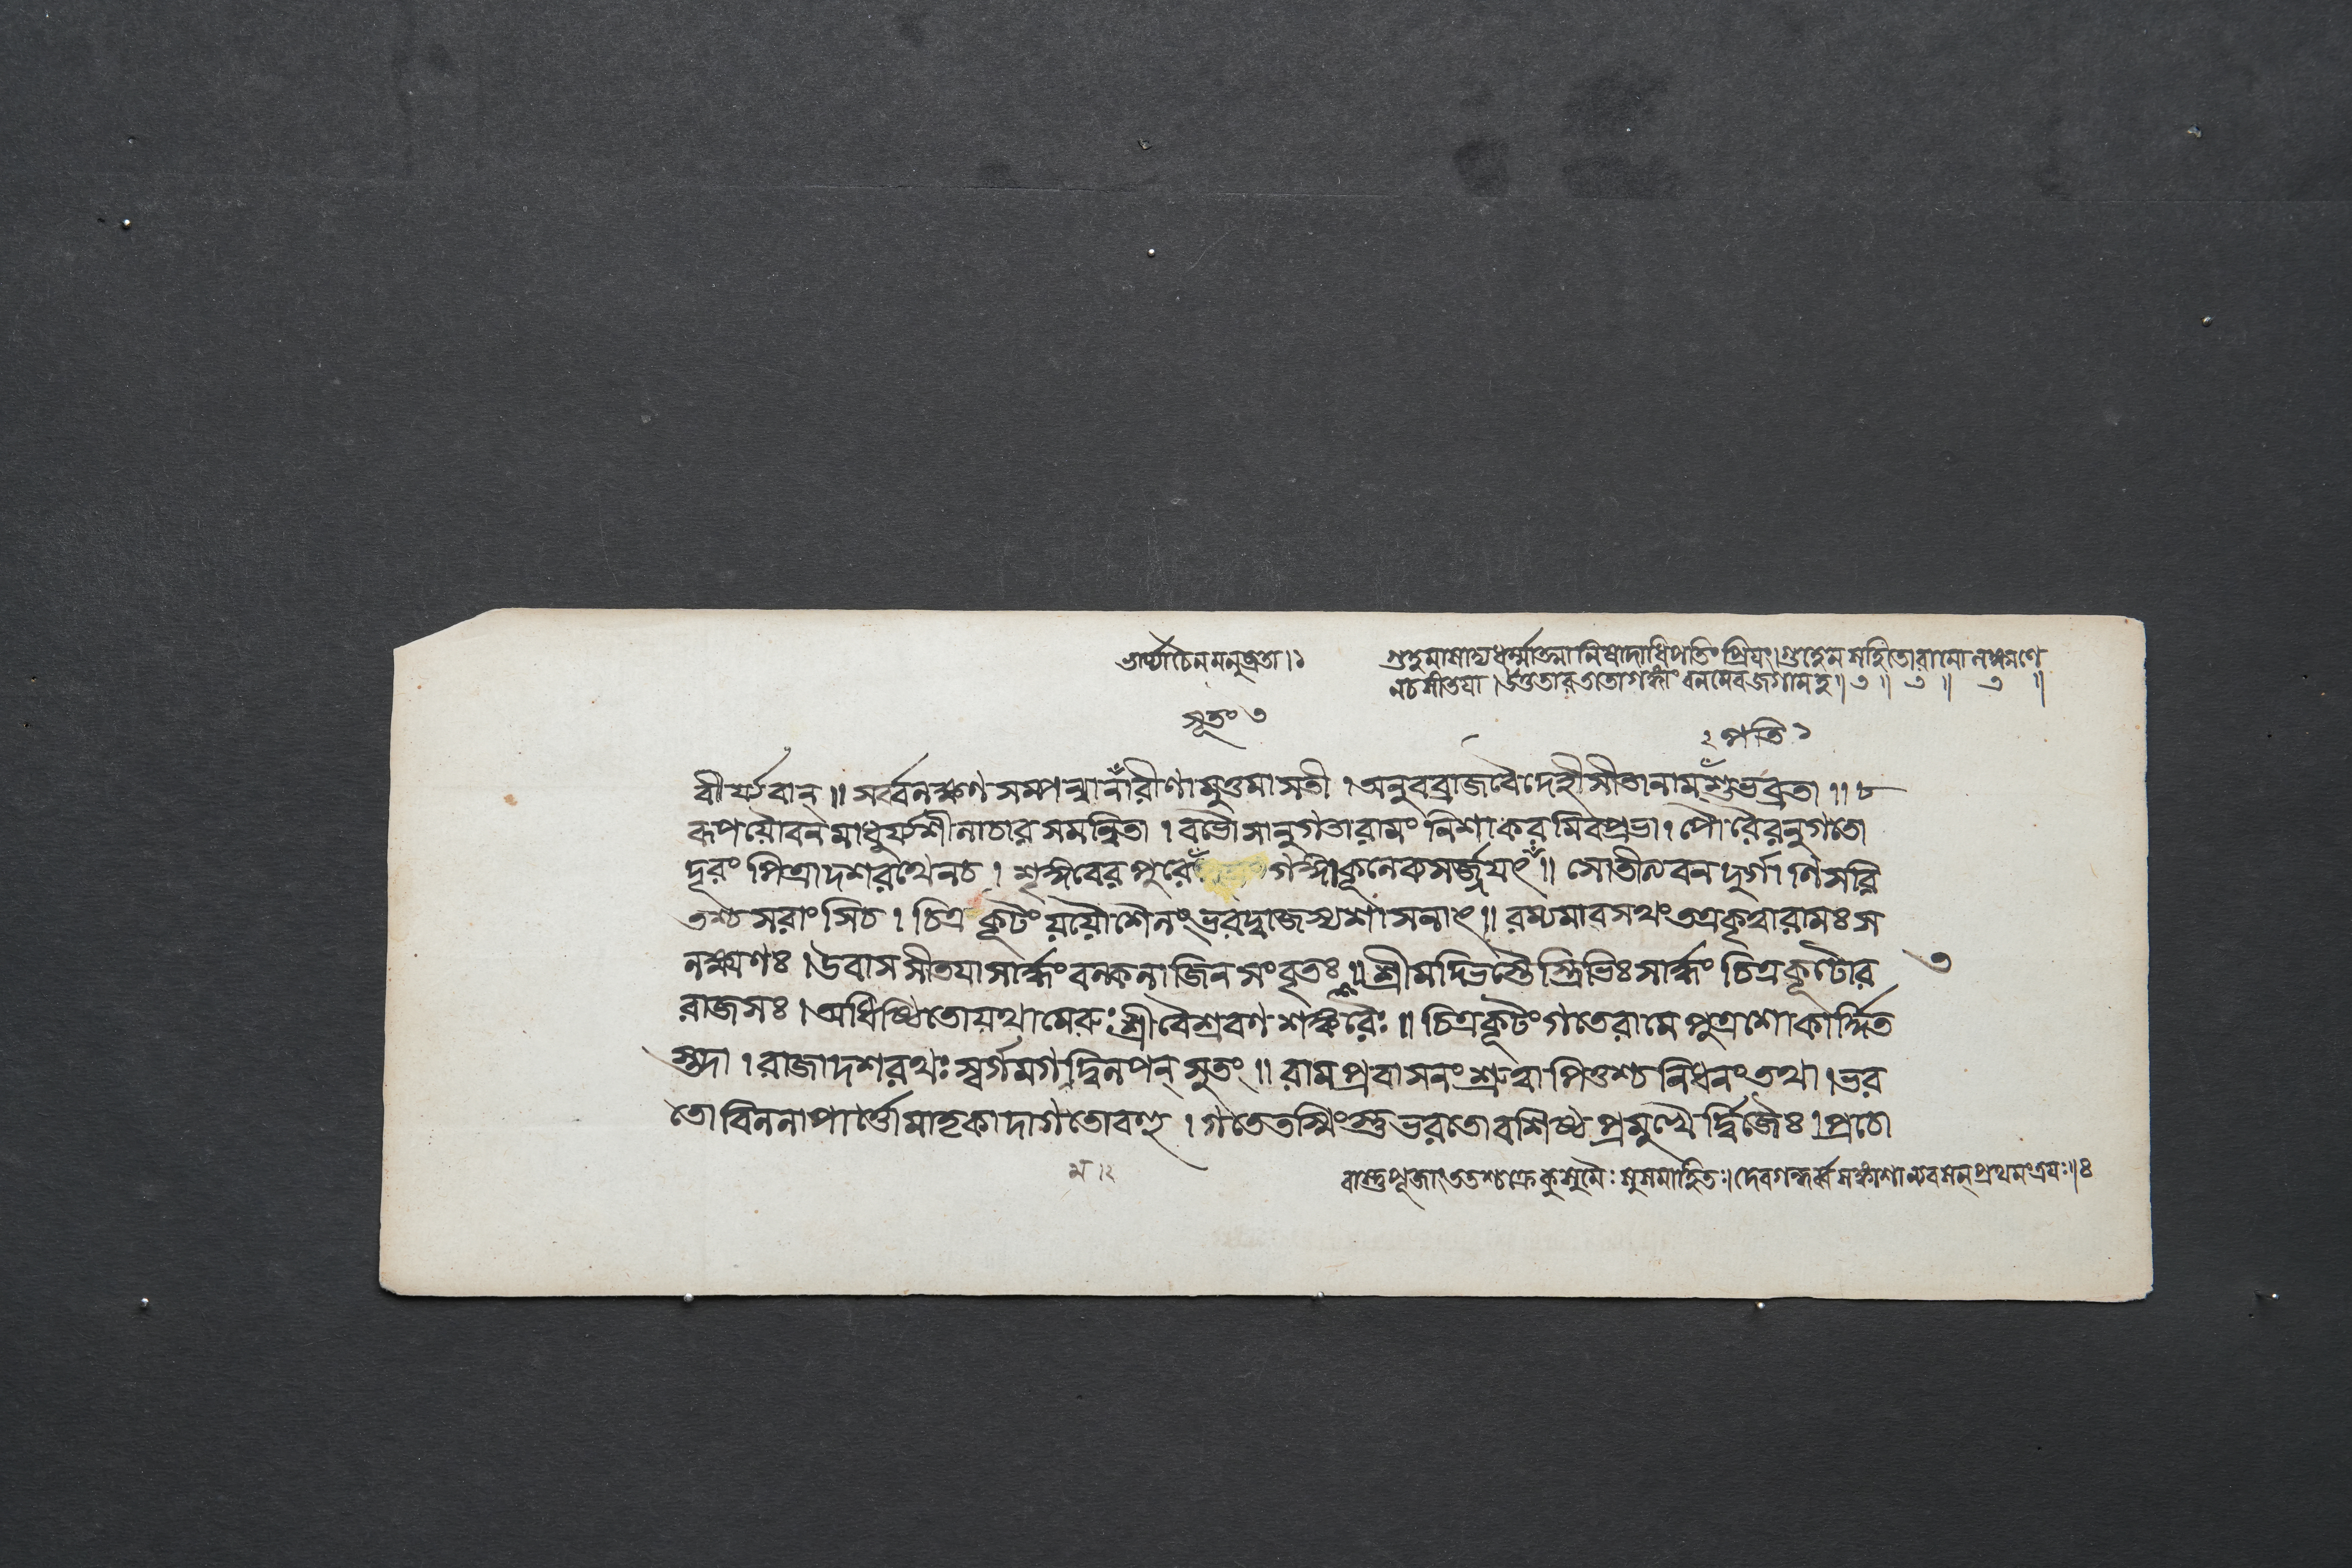 ভার্য্যাচৈনমনুব্রতা।১
গুহমাসাদ্য ধর্ম্মাত্মা নিষাদাধিপতিং প্রিয়ং। গুহেন সহিতো রামো লক্ষ্মণে
ন চ সীতয়া। উত্ততার ততো গঙ্গাং বনমেব জগাম হ॥৩॥ ৩॥ ৩॥
সূতং ৩
২ পতি ১
বীর্য্যবান্॥ সর্ব্বলক্ষণসম্পন্না নারীণামুত্তমা সতী। অনুবব্রাজ বৈদেহী সীতা নাম শুভব্রতা॥৮
রূপযৌবনমাধুর্য্যশীলাচারসমন্বিতা। বভৌ সানুগতা রামং নিশাকরমিব প্রভা। পৌরৈরনুগতো
দূরং পিত্রা দশরথেন চ। শৃঙ্গবেরপুরে গঙ্গাকূলে ব্যসর্জ্জয়ৎ॥ সোতীত্য বনদুর্গাণি সরি
তশ্চ সরাংসি চ। চিত্রকূটং যযৌ শৈলং ভরদ্বাজস্য শাসনাৎ॥ রম্যমাবসথং তত্র কৃত্বা রামঃ স
লক্ষ্মণঃ। উবাস সীতয়া সার্দ্ধং বল্কলাজিনসংবৃতঃ॥ শ্রীমদ্ভিস্তৈস্ত্রিভিঃ সার্দ্ধং চিত্রকূটো র
৩
রাজ সঃ। অধিষ্ঠিতো যথা মেরুঃ শ্রীবৈশ্রবণশঙ্করৈঃ॥ চিত্রকূটং গতে রামে পুত্রশোকার্দ্দিত
স্তদা। রাজা দশরথঃ স্বর্গমগদ্বিলপন্ সুতং॥ রামপ্রবাসনং শ্রুত্বা পিতুশ্চ নিধনং তথা। ভর
তো বিললাপার্ত্তো মাতৃকাদাগতো বশী। গতে তস্মিংস্তু ভরতো বশিষ্ঠপ্রমুখৈর্দ্বিজৈঃ। প্রচো
ম।২
বাস্তুপূজাং ততশ্চক্রে কুসুমৈঃ সুসমাহিতঃ। দেবগন্ধর্ব্বসঙ্কাশা ন্যবসন্ প্রথমং ত্রয়ঃ॥ঃ